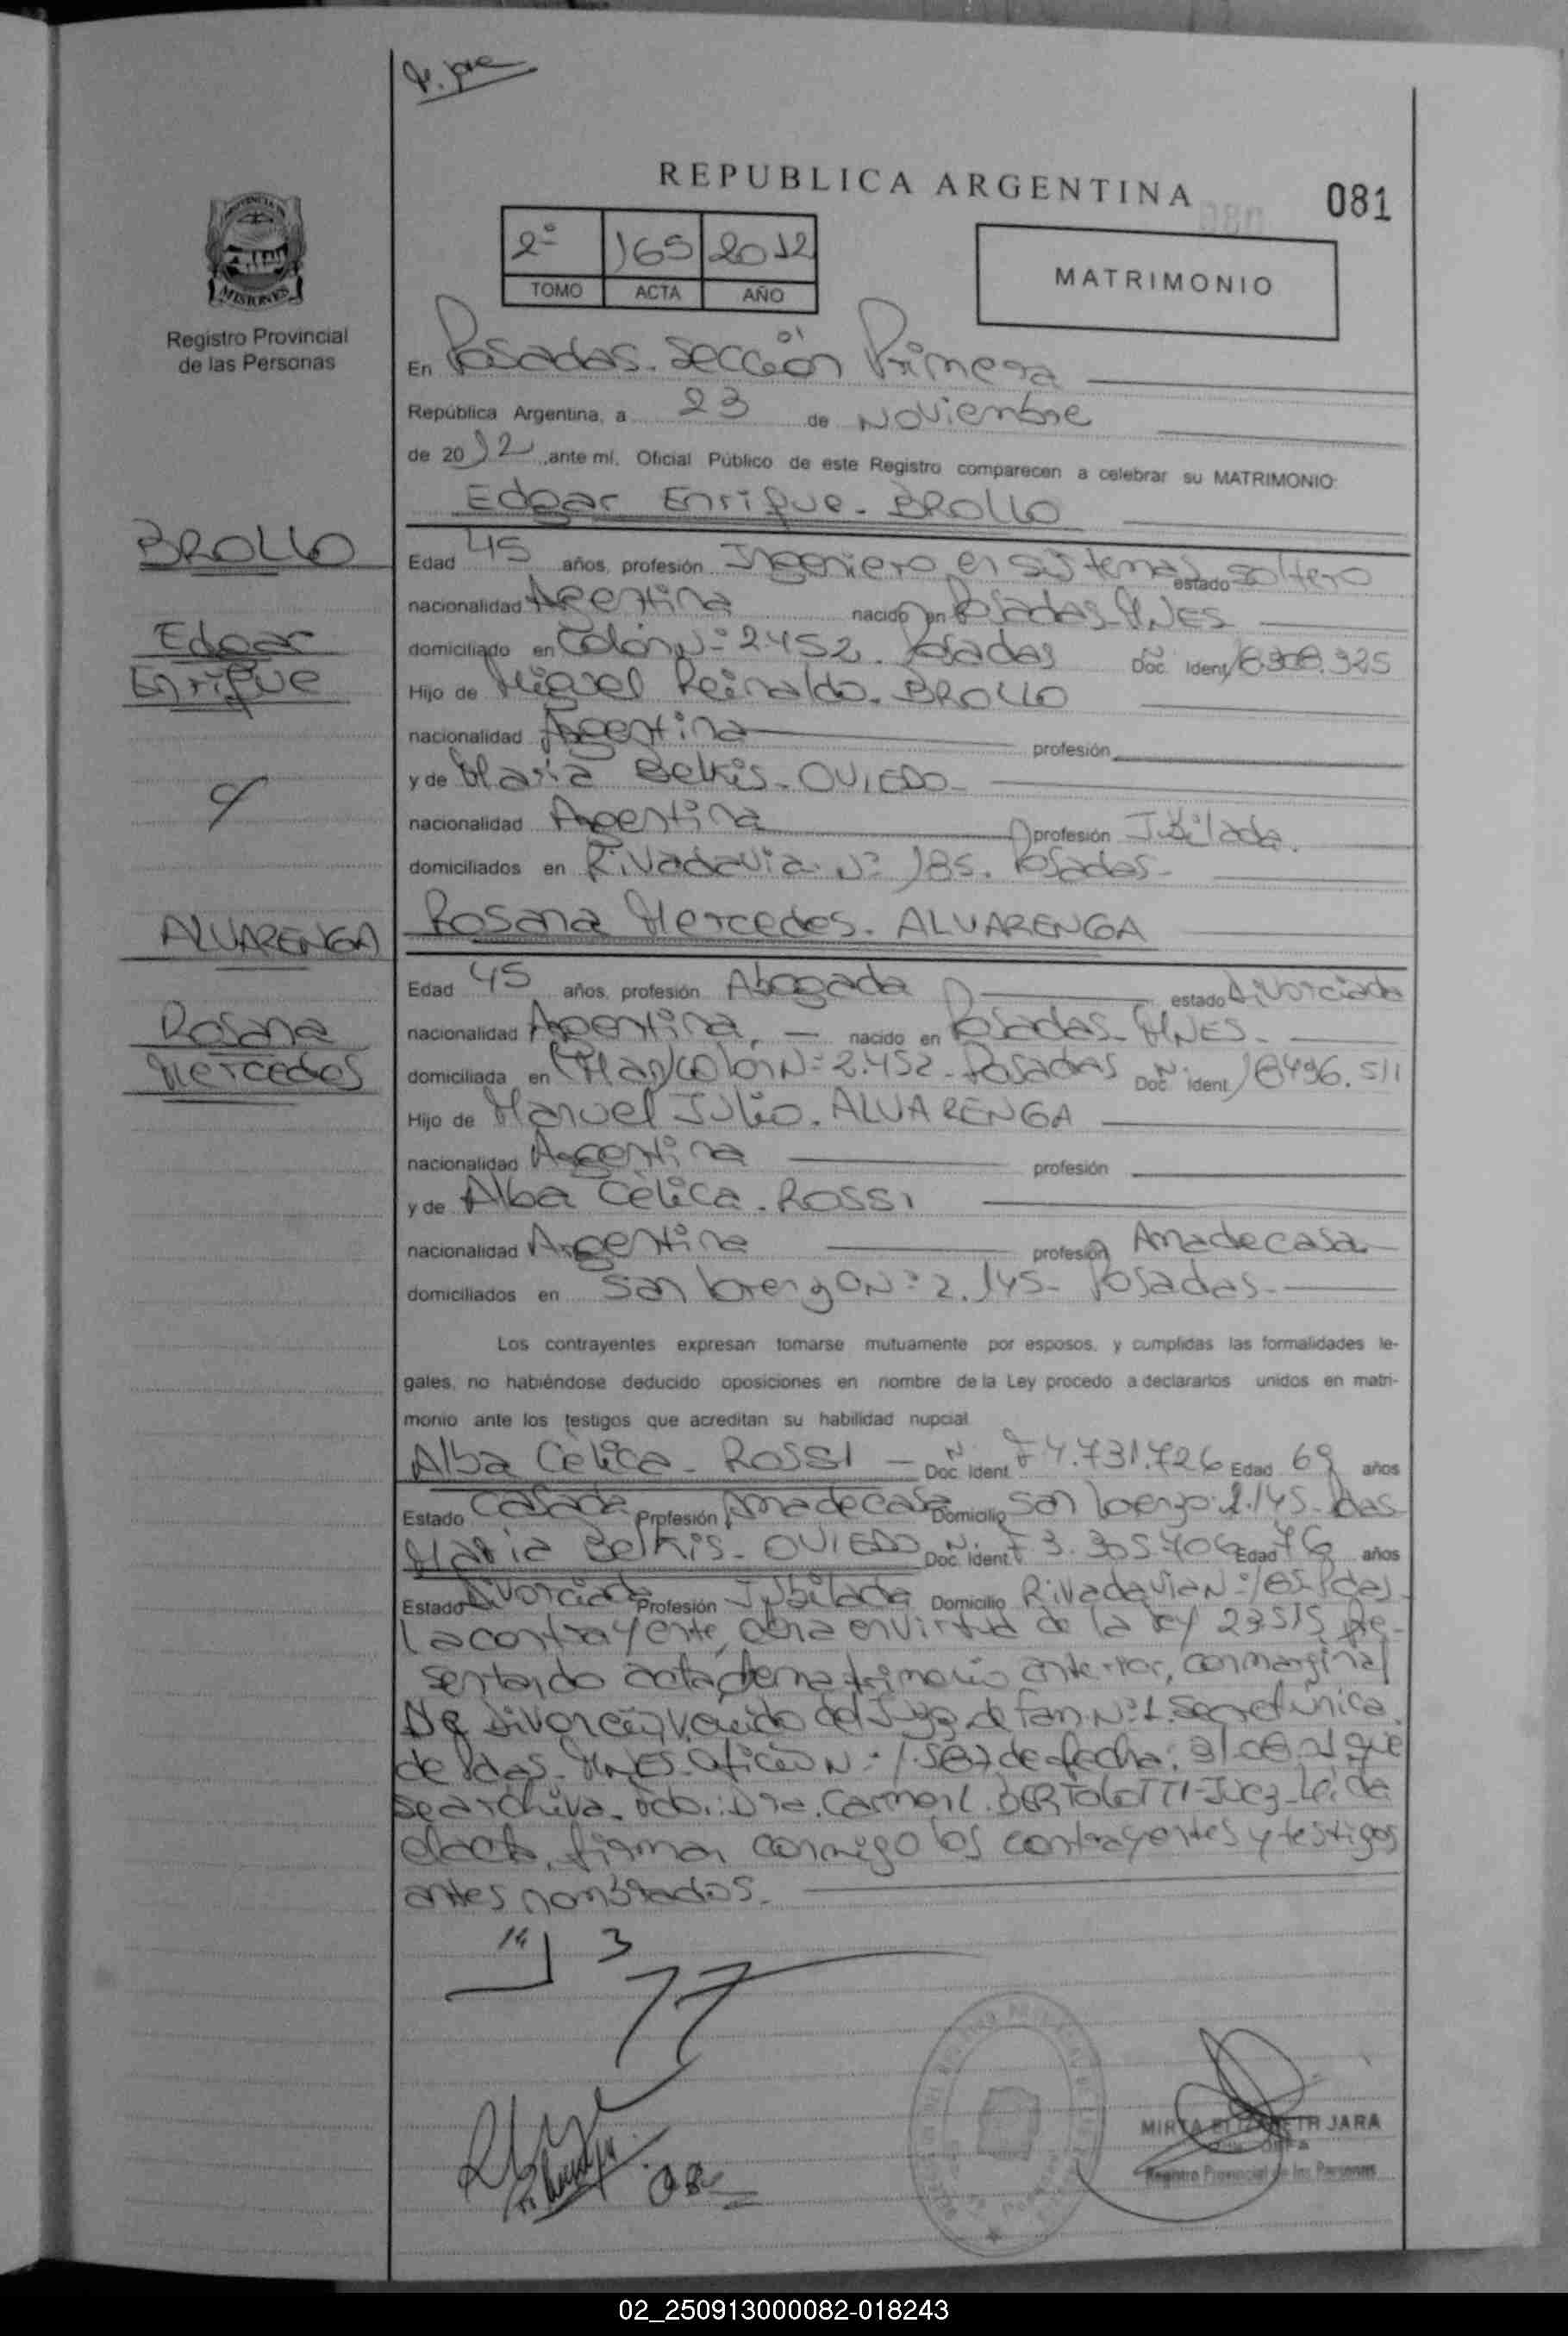 REPUBLICA ARGENTINA
081
2º 165 2012
TOMO ACTA AÑO
MATRIMONIO
MISIONES
Registro Provincial
de las Personas
En Posadas. Sección Primera
República Argentina, a 23 de Noviembre
de 2012, ante mí, Oficial Público de este Registro comparecen a celebrar su MATRIMONIO:
Edgar Enrique. BROLLO
BROLLO
Edgar
Enrique
Edad 45 años, profesión Ingeniero en sistemas estado soltero
nacionalidad Argentina nacido en Posadas-MNES
domiciliado en Colón Nº 2452. Posadas Doc. Ident.
Hijo de Miguel Reinaldo. BROLLO
nacionalidad Argentina profesión
y de Maria Belkis. OVIEDO
nacionalidad Argentina profesión Jubilada.
domiciliados en Rivadavia Nº 185. Posadas-
ALVARENGA
Rosana
Mercedes
Rosana Mercedes. ALVARENGA
Edad 45 años, profesión Abogada estado divorciada
nacionalidad Argentina, nacido en Posadas-MNES-
domiciliada en Colón Nº 2.452-Posadas Doc. Ident. 18496.511
Hijo de Manuel Julio. ALVARENGA
nacionalidad Argentina profesión
y de Alba Cèlica. ROSSI
nacionalidad Argentina profesión Amadecasa
domiciliados en San Lorenzo Nº 2.145- Posadas-
Los contrayentes expresan tomarse mutuamente por esposos, y cumplidas las formalidades le-
gales, no habiéndose deducido oposiciones en nombre de la Ley procedo a declararlos unidos en matri-
monio ante los testigos que acreditan su habilidad nupcial
Alba Cèlica - ROSSI - Doc. Ident. F4.731.726 Edad 69 años
Estado Casada Profesión Amadecasa Domicilio San Lorenzo 2.145-Pdas
Maria Belkis- OVIEDO Doc. Ident. F 3.305.406 Edad 76 años
Estado Divorciada Profesión Jubilada Domicilio Rivadavia Nº 185-Pdas-
La contrayente, en virtud de la ley 23515 Pre-
sentando acta de matrimonio anterior, con marginal
De divorcio, del Juzg. de Fam. Nº 1. Secret. Unica
de Pdas-MNES-Oficio Nº de fecha: que
se archiva. Fdo.: Dra. Carmen L. BERTOLOTTI-Juez-Leida
el acta, firman conmigo los contrayentes y testigos
antes nombrados.
MIRTA ELIZABETH JARA
Registro Provincial de las Personas
02_250913000082-018243